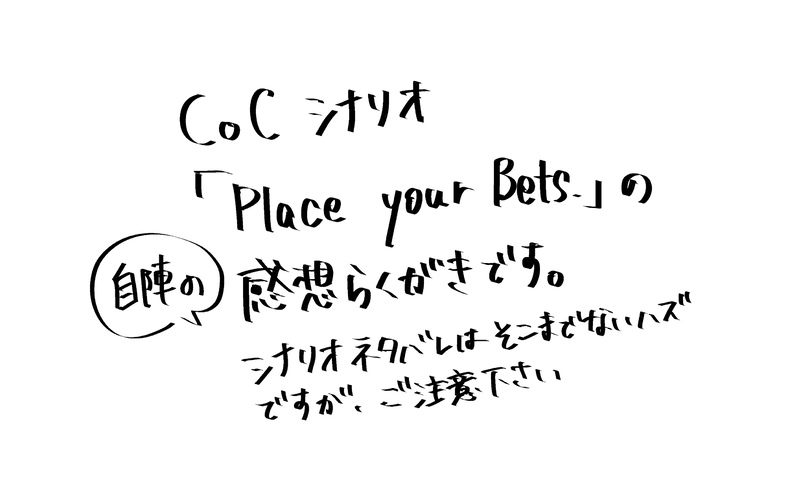 CoC シナリオ
「Place your Bets.」の
自陣の
感想らくがきです。
シナリオネタバレはそこまでないハズ
ですが、ご注意下さい